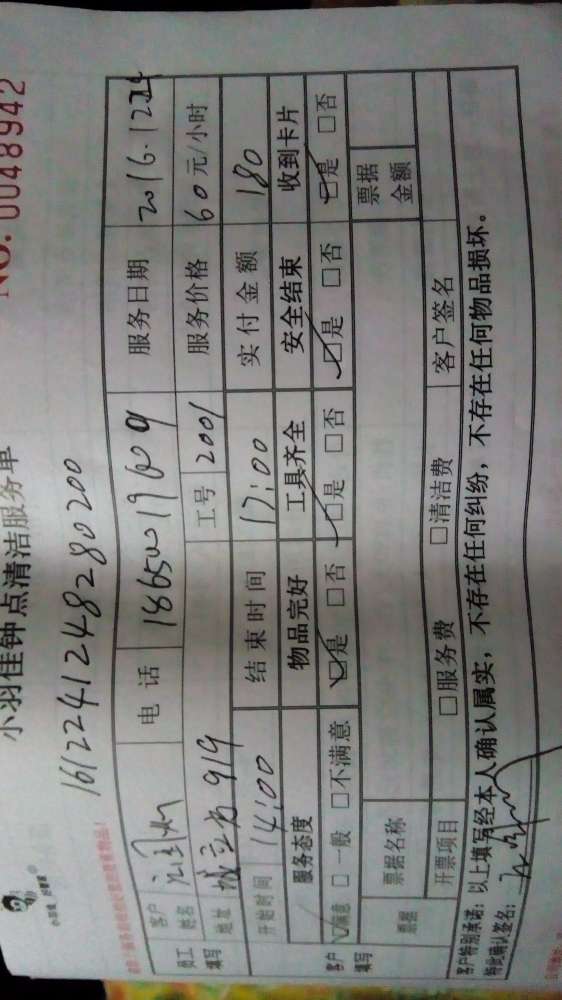 小羽佳钟点清洁服务单
NO. 0048942
1612241248280200
员工填写 客户姓名 电话 服务日期 2016.12.24
地址 919 工号 2001 服务价格 60元/小时
开始时间 14:00 结束时间 17:00 实付金额 180
客户填写 服务态度 物品完好 工具齐全 安全结束 收到卡片
☑满意 □一般 □不满意 ☑是 □否 ☑是 □否 ☑是 □否 ☑是 □否
票据 票据名称 票据金额
开票项目 □服务费 □清洁费 客户签名
客户特别承诺：以上填写经本人确认属实，不存在任何纠纷，不存在任何物品损坏。
特此确认签名：